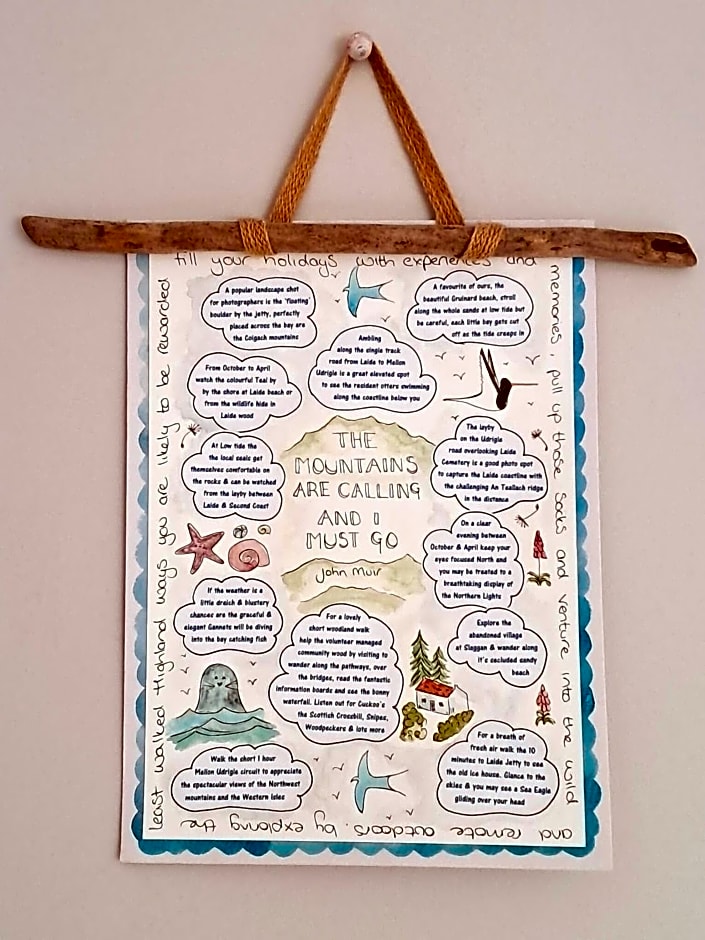 fill your holidays with experiences and
memories, pull up those socks and venture into the wild
and remote outdoors, by exploring the
least walked Highland ways you are likely to be rewarded
A popular landscape shot
for photographers is the 'floating'
boulder by the jetty, perfectly
placed across the bay are
the Coigach mountains
A favourite of ours, the
beautiful Gruinard beach, stroll
along the whole sands at low tide but
be careful, each little bay gets cut
off as the tide creeps in
Ambling
along the single track
road from Laide to Mellon
Udrigle is a great elevated spot
to see the resident otters swimming
along the coastline below you
From October to April
watch the colourful Teal by
by the shore at Laide beach or
from the wildlife hide in
Laide wood
The layby
on the Udrigle
road overlooking Laide
Cemetery is a good photo spot
to capture the Laide coastline with
the challenging An Teallach ridge
in the distance
At Low tide the
the local seals get
themselves comfortable on
the rocks & can be watched
from the layby between
Laide & Second Coast
THE
MOUNTAINS
ARE CALLING
AND I
MUST GO
John Muir
On a clear
evening between
October & April keep your
eyes focused North and
you may be treated to a
breathtaking display of
the Northern Lights
If the weather is a
little dreich & blustery
chances are the graceful &
elegant Gannets will be diving
into the bay catching fish
For a lovely
short woodland walk
help the volunteer managed
community wood by visiting to
wander along the pathways, over
the bridges, read the fantastic
information boards and see the bonny
waterfall. Listen out for Cuckoo's
the Scottish Crossbill, Snipes,
Woodpeckers & lots more
Explore the
abandoned village
at Slaggan & wander along
it's secluded sandy
beach
Walk the short 1 hour
Mellon Udrigle circuit to appreciate
the spectacular views of the Northwest
mountains and the Western Isles
For a breath of
fresh air walk the 10
minutes to Laide Jetty to see
the old ice house. Glance to the
skies & you may see a Sea Eagle
gliding over your head